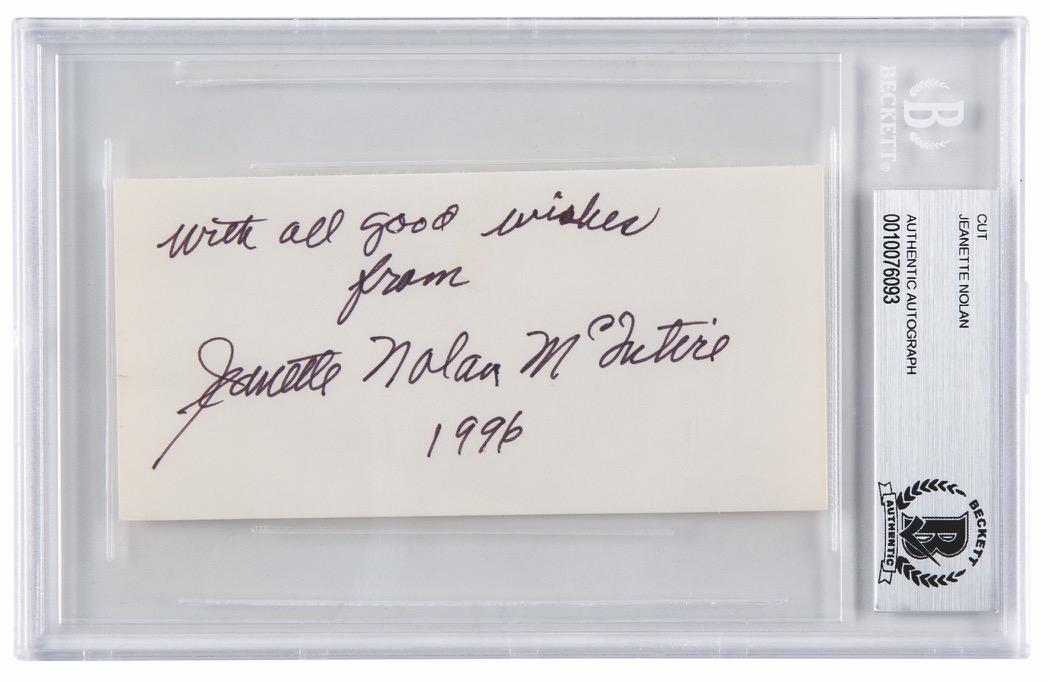 with all good wishes
from
Jeanette Nolan McIntire
1996
BECKETT®
B
CUT
JEANETTE NOLAN
AUTHENTIC AUTOGRAPH
0010076093
BECKETT
B
AUTHENTIC